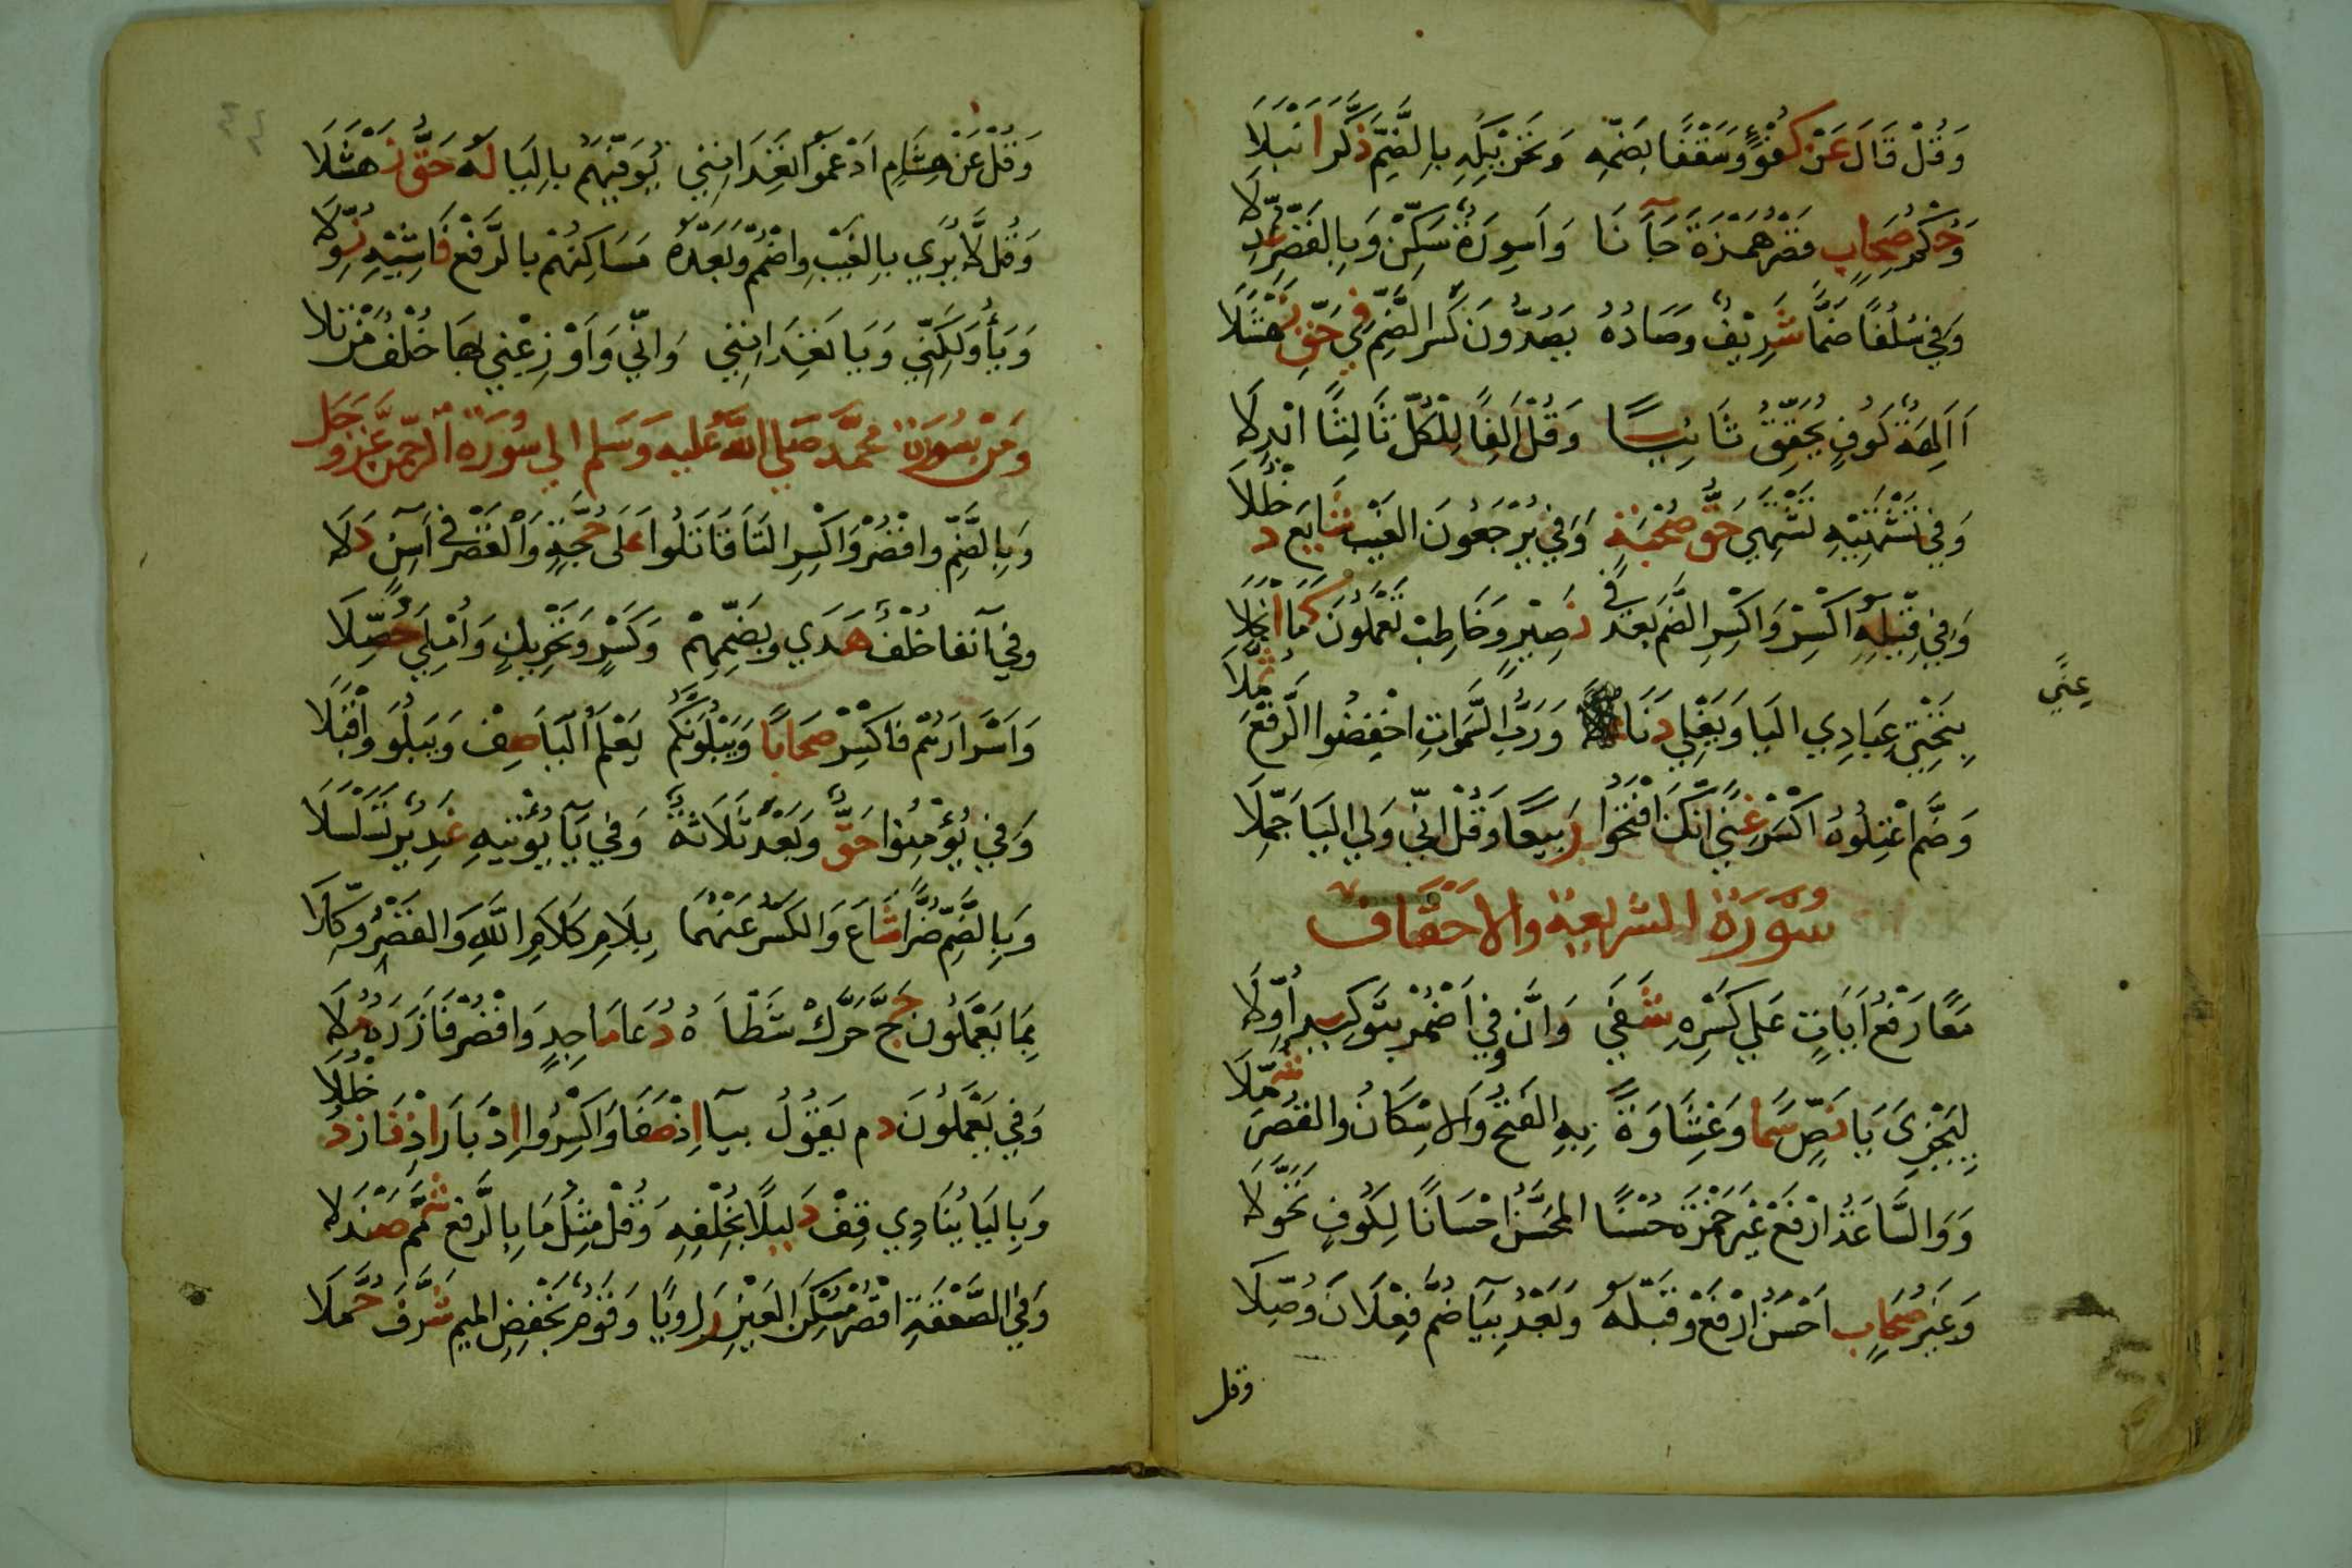 وَقُلْ قَالَ عَنْ كُفْؤٍ وَسَقْفًا بِضَمِّهِ وَتَحْرِيكِهِ بِالضَّمِّ ذَكَّرَ أَنْبَلَا
وَحُكْمُ صِحَابٍ قَصْرُ هَمْزَةِ جَآءَنَا وَأَسْوِرَةٌ سَكِّنْ وَبِالقَصْرِ عُدِّلَا
وَفِي سُلُفًا ضَمَّا شَرِيفٍ وَصَادُهُ يَصُدُّونَ كَسْرُ الضَّمِّ فِي حَقِّ نَهْشَلَا
ءَاَلِهَةٌ كُوفٍ يُحَقِّقُ ثَانِيًا وَقُلْ أَلِفًا لِلْكُلِّ ثَالِثًا ابْدِلَا
وَفِي تَشْتَهِيهِ تَشْتَهِي حَقُّ صُحْبَةٍ وَفِي يُرْجَعُونَ الغَيْبُ شَايَعَ دُخْلُلَا
وَفِي قِيلَهُ اكْسِرْ وَاكْسِرِ الضَّمَّ بَعْدُ فِي نَصِيرٍ وَخَاطِبْ تَعْلَمُونَ كَمَا انْجَلَا
بِتَحْتِي عِبَادِي اليَا وَيَغْلِي دَنَا عُلًا وَرَبُّ السَّمَوَاتِ اخْفِضُوا الرَّفْعَ ثُمَّلَا
وَضَمَّ اعْتِلُوهُ اكْسِرْ غِنًى إِنَّكَ افْتَحُوا رَبِيعًا وَقُلْ إِنِّي وَلِي اليَا جُمِّلَا
سورة الشريعة والاحقاف
مَعًا رَفْعُ آيَاتٍ عَلَى كَسْرِهِ شَفَى وَإِنَّ وَفِي أَضْمِرْ بِتَوْكِيدٍ أُوِّلَا
لِيَجْزِيَ يَا نَصٍّ سَمَا وَغِشَاوَةً بِهِ الفَتْحُ وَالاسْكَانُ وَالقَصْرُ شُمِّلَا
وَوَالسَّاعَةَ ارْفَعْ غَيْرَ حَمْزَةَ حُسْنًا المُحَسَّنُ احْسَانًا لِكُوفٍ تَحَوَّلَا
وَغَيْرُ صِحَابٍ أَحْسَنُ ارْفَعْ وَقَبْلَهُ وَبَعْدُ بِيَاءٍ ضُمَّ فِعْلَانِ وُصِّلَا
وقل
عِنًى
وَقُلْ عَنْ هِشَامٍ أَدْغَمُوا تَعِدَانِنِي يُوَفِّيَهُمْ بِاليَا لَهُ حَقُّ نَهْشَلَا
وَقُلْ لَا يُرَى بِالغَيْبِ وَاضْمُمْ وَبَعْدَهُ مَسَاكِنُهُمْ بِالرَّفْعِ فَاشِيهِ نُوِّلَا
وَيَاءُ وَلَكِنِّي وَيَا تَعِدَانِنِي وَإِنِّي وَأَوْزِعْنِي بِهَا خُلْفُ مَنْ تَلَا
وَمِنْ سُورَة محمَّد صلى الله عليه وسلم إلى سُورَة الرحمن عَزَّ وَجَل
وَبِالضَّمِّ وَاقْصُرْ وَاكْسِرِ التَّا قَاتَلُوا عَلَى حُجَّةٍ وَالقَصْرُ فِي آسِنٍ دَلَا
وَفِي آنِفًا خُلْفٌ هَدَى وَبِضَمِّهِمْ وَكَسْرٍ وَتَحْرِيكٍ وَأُمْلِيَ حُصِّلَا
وَأَسْرَارَهُمْ فَاكْسِرْ صِحَابًا وَيَبْلُوَنَّكُمْ يَعْلَمَ اليَا صِفْ وَيَبْلُوَ وَاقْبَلَا
وَفِي يُؤْمِنُوا حَقٌّ وَبَعْدُ ثَلَاثَةٌ وَفِي يَآ يُؤْتِيهِ غَدِيرٌ تَسَلْسَلَا
وَبِالضَّمِّ ضُرًّا شَاعَ وَالكَسْرُ عَنْهُمَا بِلَامِ كَلَامَ اللَّهِ وَالقَصْرُ وُكِّلَا
بِمَا يَعْمَلُونَ حَجَّ حَرَّكَ شَطْأَهُ دُعَا مَاجِدٍ وَاقْصُرْ فَآزَرَهُ مُلَا
وَفِي يَعْمَلُونَ دم يَقُولُ بِيَآ اِذْ صَفَا وَاكْسِرُوا اِدْبَارَ اِذْ فَازَ دُخْلُلَا
وَبِاليَا يُنَادِي قِفْ دَلِيلًا بِخُلْفِهِ وَقُلْ مِثْلُ مَا بِالرَّفْعِ شَمَّمَ صَنْدَلَا
وَفِي الصَّعْقَةِ اقْصُرْ مُسْكِنَ العَيْنِ رَاوِيًا وَقَوْمَ بِخَفْضِ المِيمِ شَرَّفَ حُمَّلَا